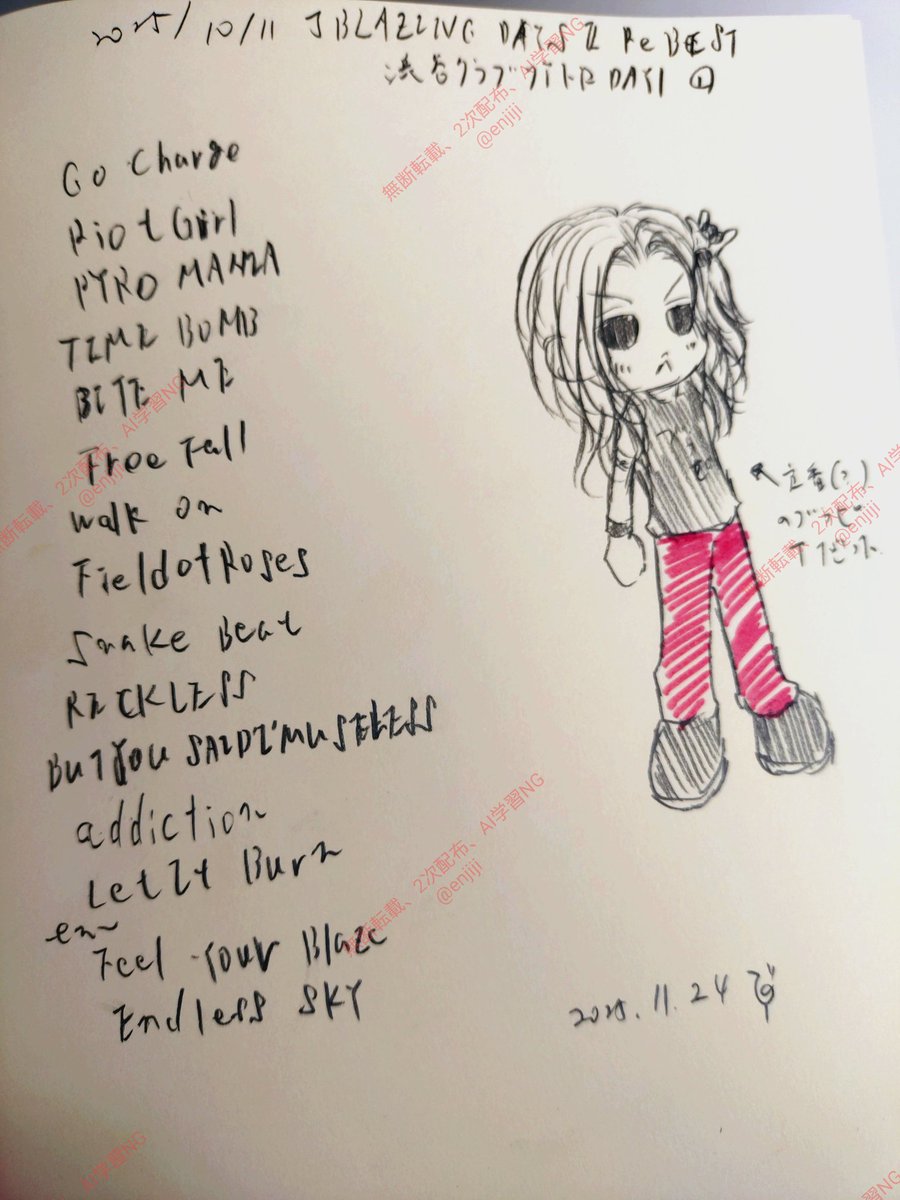 2025/10/11 J BLAZZING DAYS II Re BEST
渋谷クラブクアトロ DAY1 ①
Go Charge
Riot Girl
PYRO MANIA
TIME BOMB
BITE ME
Free Fall
walk on
Field of Roses
Snake Beat
RECKLESS
BUT YOU SAID I'M USELESS
addiction
Let It Burn
en~
Feel Your Blaze
Endless SKY
定番(?)
2025.11.24
無断転載、2次配布、AI学習NG
@enjiji
無断転載、2次配布、AI学習NG
@enjiji
無断転載、2次配布、AI学習NG
@enjiji
無断転載、2次配布、AI学習NG
@enjiji
AI学習NG
AI学習NG